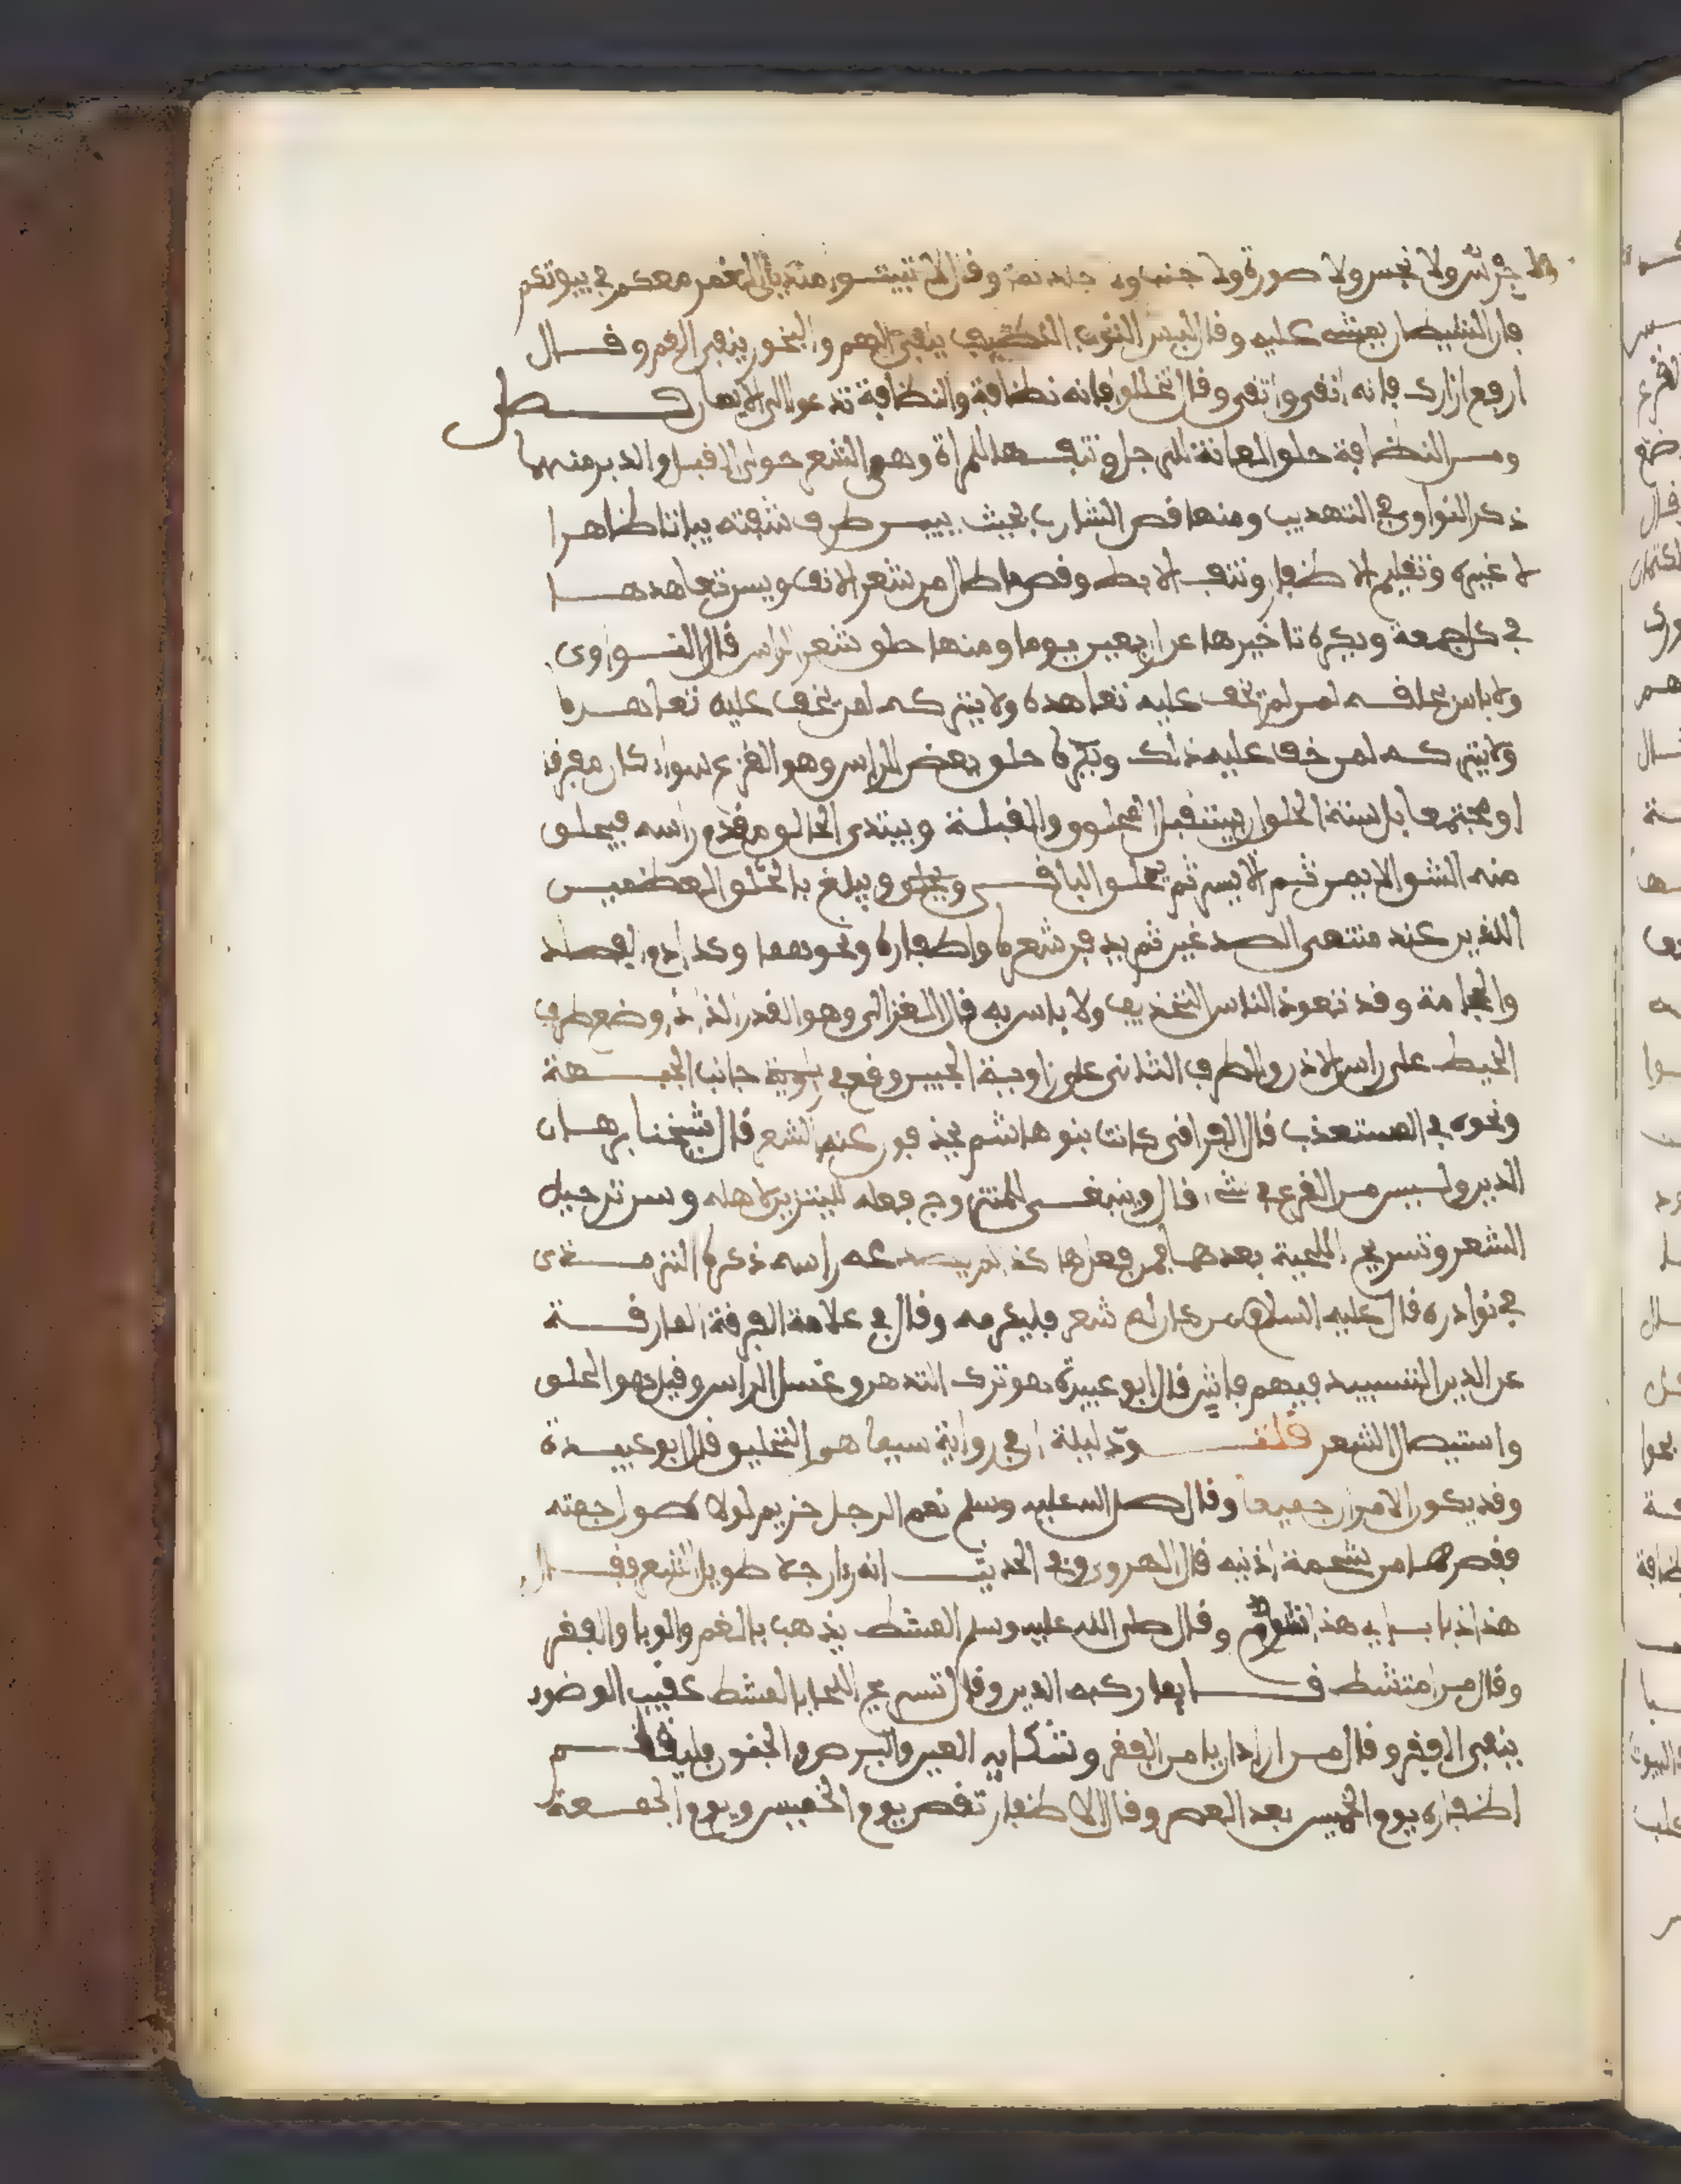 ولا نجس ولا صورة ولا جنب ولا وقال لا تبيتوا منديل الغمر معكم في بيوتكم
فان الشيطان عليه وقال لبس الثوب النظيف ينفي الهم والبخور ينفي الغم وقال
ارفع ازارك فانه انقى واتقى وقال تخللوا فانه نظافة والنظافة تدعوا الى الايمان فصل
ومن النظافة حلق العانة للرجل ونتفها للمراة وهو الشعر حوالي القبل والدبر منهما
ذكر النواوي في التهذيب ومنها قص الشارب بحيث يبين طرف شفته بيانا ظاهرا
لا غيره وتقليم الاظفار ونتف الابط وقص ما طال من شعر الانف ويسن تعاهدها
في كل جمعة ويكره تاخيرها عن اربعين يوما ومنها حلق شعر الراس قال النواوي
ولا باس بحلقه لمن لم يخف عليه تعاهده ولا يتركه لمن يخف عليه تعاهده
ولا يتركه لمن خف عليه ذلك ويكره حلق بعض الراس وهو القزع سواء كان مفرقا
او مجتمعا بل سنة الحلق ان يستقبل المحلوق القبلة ويبتدي الحالق مقدم راسه فيحلق
منه الشق الايمن ثم الايسر ثم يحلق الباقي ويبلغ بالحلق العظمين
اللذين عند منتهى الصدغين ثم يدفن شعره واظفاره ونحوهما وكذا دم الفصاد
والحجامة وقد تعوذ الناس التخذيف ولا باس به قال الغزالي وهو القدر الذي وضع طرف
الخيط على راس الاذن والطرف الثاني على زاوية الجبين وقع في جانب الجبهة
ونحوه في المستعذب قال القرافي كانت بنو هاشم يحذفون عنه الشعر قال شيخنا برهان
الدين وليس من القزع في شيء قال وينبغي للمتزوج فعله للتزين لاهله وسن ترجيل
الشعر وتسريح اللحية بعدهما راسه ذكره الترمذي
في نوادره قال عليه السلام من كان له شعر فليكرمه وقال في علامة الفرقة المارقة
عن الدين التسبيد فيهم فاش قال ابو عبيدة هو ترك التدهن وغسل الراس وقيل هو الحلق
واستيصال الشعر قلت ودليله ان في رواية سيماهم التحليق قال ابو عبيدة
وقد يكون الامران جميعا وقال صلى الله عليه وسلم نعم الرجل خزيم لولا طول جمته
فقصرها من شحمة اذنيه قال الهروي وفي الحديث انه را رجلا طويل الشعر فقال
هذا ذباب اي هذا شوم وقال صلى الله عليه وسلم المشط يذهب بالغم والوبا والفقر
وقال من امتشط قايما ركبه الدين وقال تسريح اللحا بالمشط عقيب الوضوء
ينفي الفقر وقال من اراد ان يامن الفقر وشكاية العين والبرص والجنون فليقلم
اظفاره يوم الخميس بعد العصر وقال الاظفار تقص يوم الخميس ويوم الجمعة